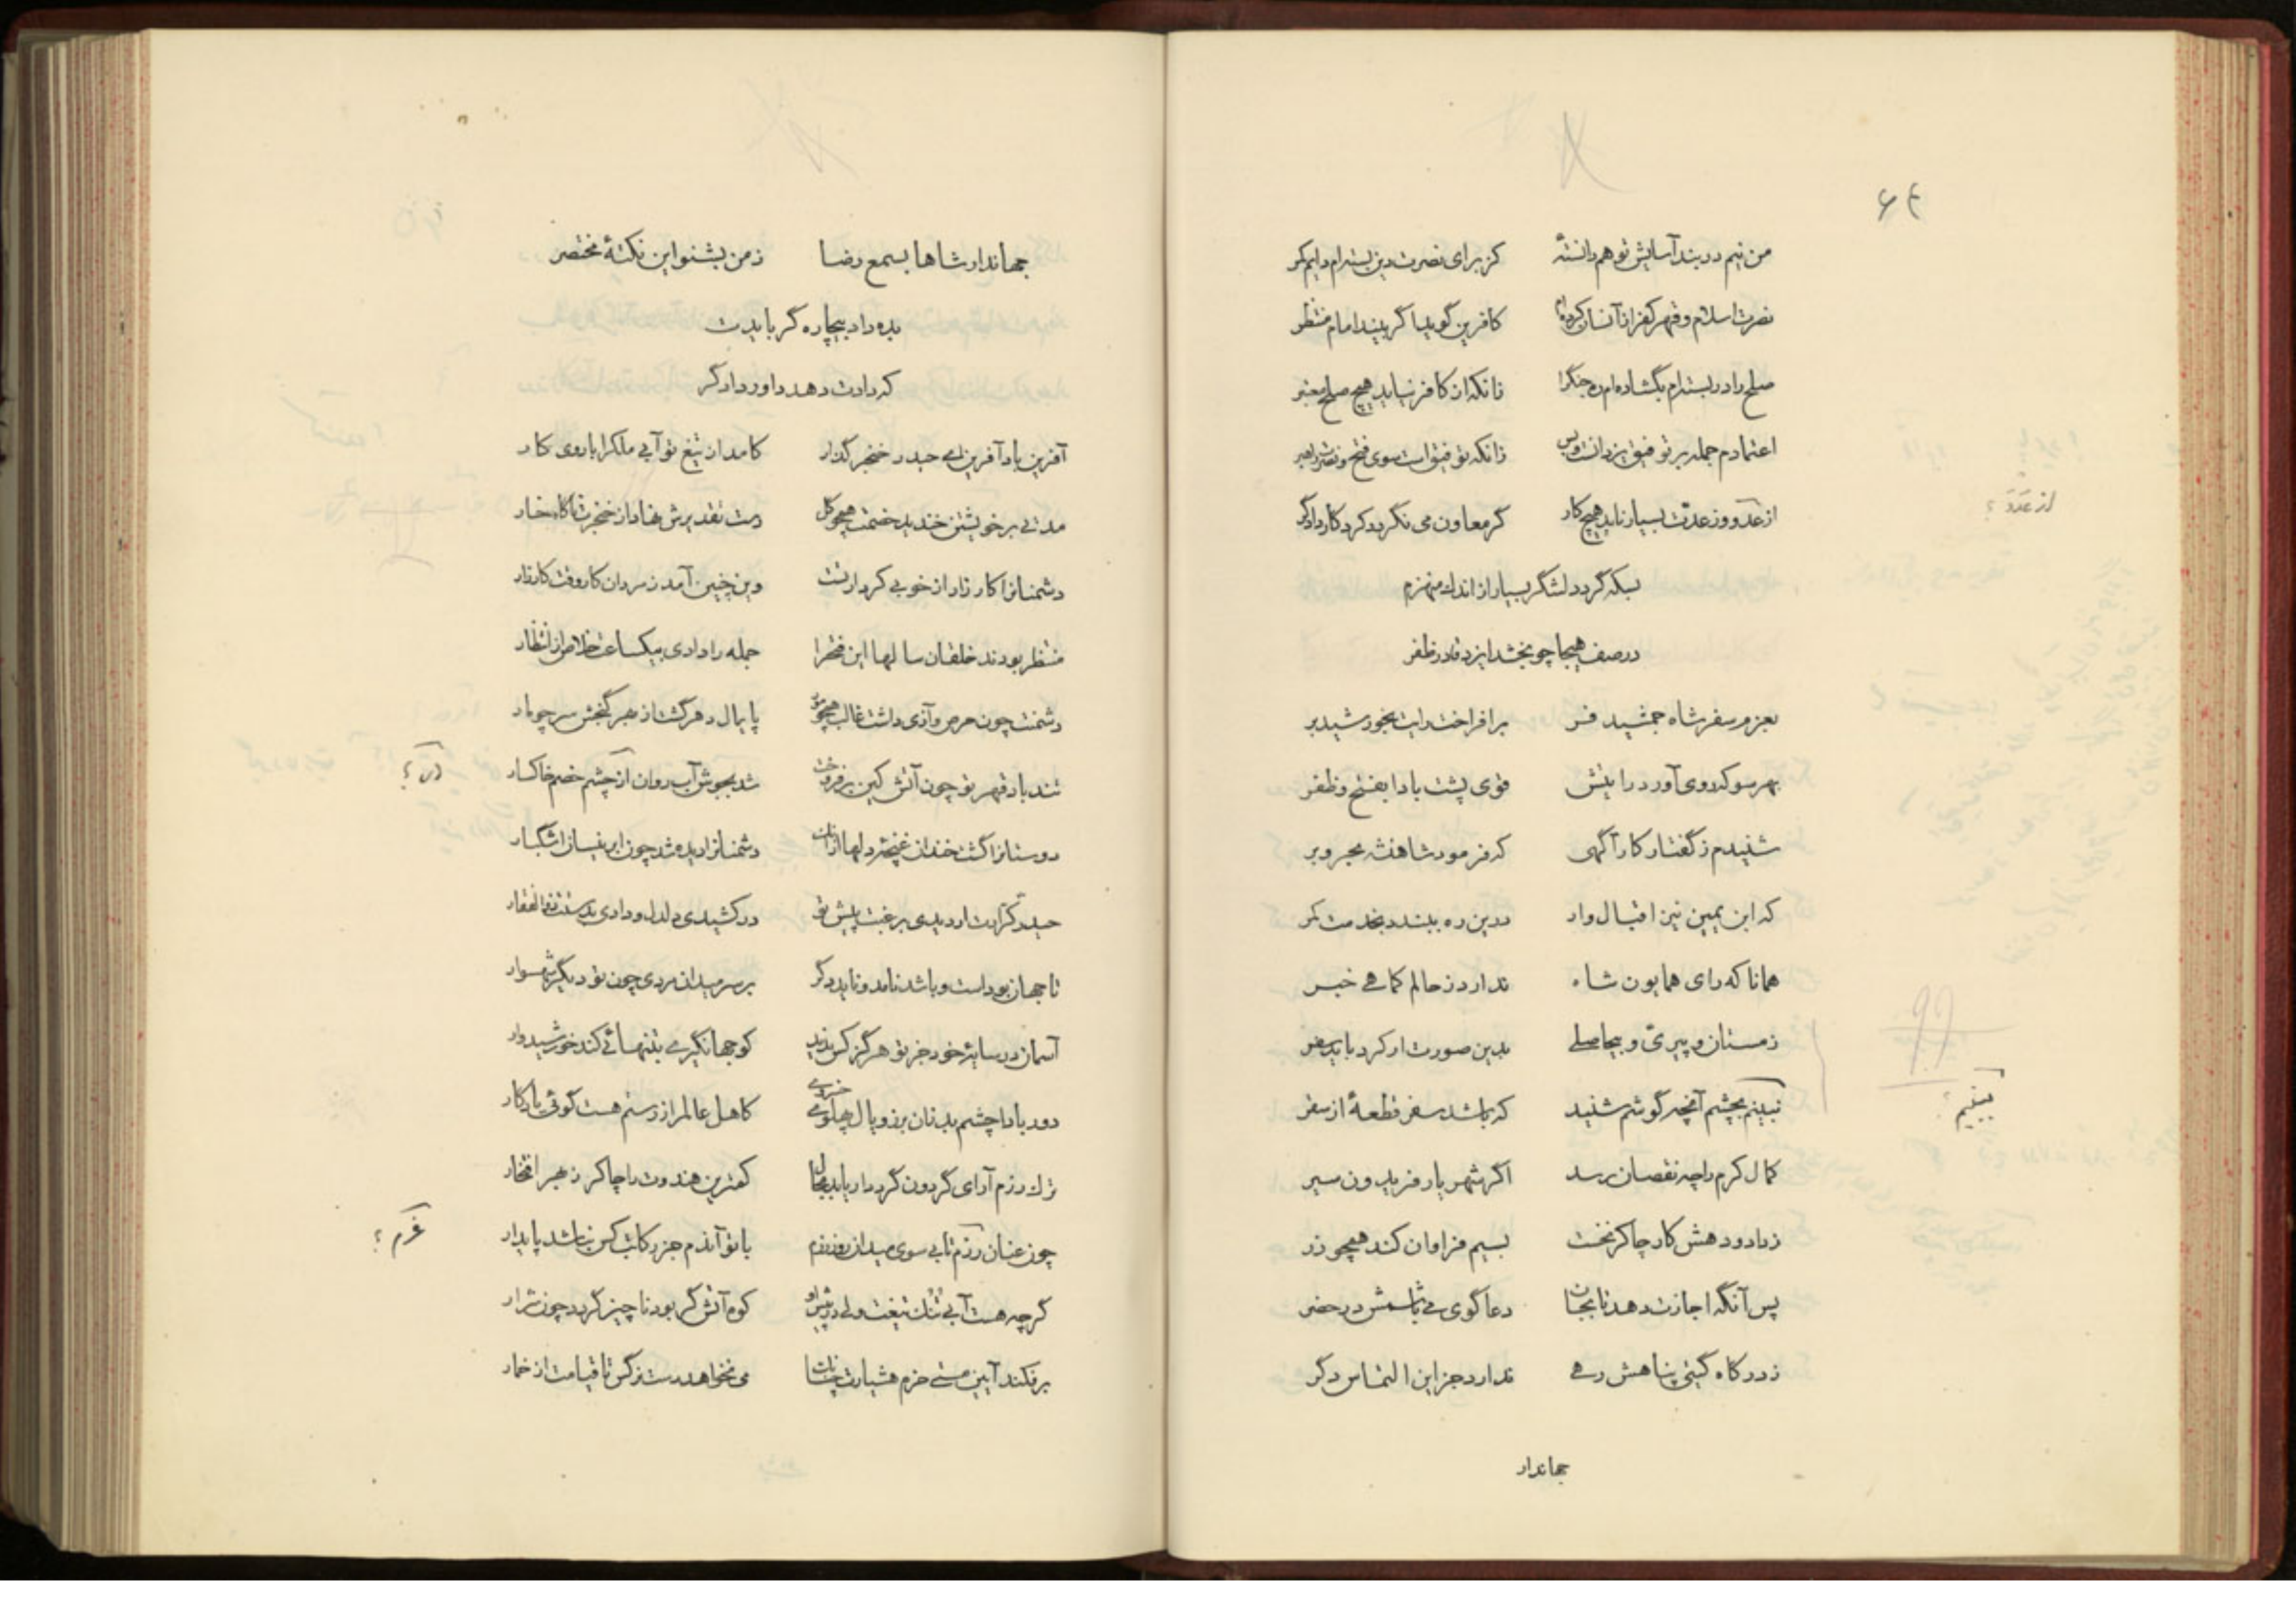 ۶۴
من نیم در بند آسایش تو هم دانسته کز برای نصرت دین بسته‌ام دایم کمر
نصرت اسلام و قهر کفر از آنسان کرده‌ام کافرین گوید اگر بیند امام منتظر
صلح را در بسته‌ام بگشاده‌ام ره جنگرا زانکه از کافر نیاید هیچ صلح معتبر
اعتمادم جمله بر توفیق یزدانست و بس زانکه توفیق است سوی فتح و نصرت راهبر
از عدو وز عدت بسیار ناید هیچ کار گر معاون می نگردد کردگار دادگر
از عَدَد ؟
بسکه گردد لشگر بسیار از اندک منهزم
در صف هیجا چو بخشد ایزد قادر ظفر
بعزم سفر شاه جمشید فر بر افراخت رایت بخورشید بر
بهر سو که روی آورد رایتش قوی پشت بادا بفتح و ظفر
شنیدم ز گفتار کار آگهی که فرمود شاهنشه بحر و بر
که ابن یمین نیز اقبال وار درین ره ببندد بخدمت کمر
همانا که رای همایون شاه ندارد ز حالم کماهی خبر
زمستان و پیری و بیحاصلی بدین صورت ار کرد باید سفر
نبینم بچشم آنچه گوشم شنید که باشد سفر قطعهٔ از سقر
ببینم ؟
کمال کرم را چه نقصان رسد اگر شهریار فریدون سیر
ز داد و دهش کار چاکر نخست بسیم فراوان کند همچو زر
پس آنگه اجازت دهد تا بجان دعا گوی می باشمش در حضر
ز درگاه گیتی پناهش رهی ندارد جز این التماس دگر
جهاندار
جهاندار شاها بسمع رضا ز من بشنو این نکتهٔ مختصر
بده داد بیچاره گر بایدت
که دادت دهد داور دادگر
آفرین باد آفرین ای حیدر خنجر گذار کامد از تیغ تو آبی ملک را با روی کار
مدتی بر خویشتن خندید خصمت همچو گل دست تقدیرش نهاد از خنجرت ناگاه خار
دشمنانرا کار زار از خوبی کردار تست وین چنین آمد ز مردان کار وقت کارزار
منتظر بودند خلقان سالها این فتح را جمله را دادی بیکساعت خلاص از انتظار
دشمنت چون حرص و آزی داشت غالب همچو مور پایمال دهر گشت از بهر گنجش سر چو مار
تند باد قهر تو چون آتش کین بر فروخت شد بجوش آب روان از چشم خصم خاکسار
در ؟
دوستانرا گشت خندان غنچهٔ دلها از آن دشمنانرا دیده شد چون ابر نیسان اشگبار
حیدر کرّارت ار دیدی برغبت پیش تو در کشیدی دلدل و دادی بدستت ذوالفقار
تا جهان بوداست و باشد نامد و ناید دگر بر سر میدان مردی چون تو دیگر شهسوار
آسمان در سایهٔ خود جز تو هرگز کس ندید کو جهانگیری بتنهائی کند خورشید وار
دور بادا چشم بد زان برز و یال پهلوی کاهل عالم را ز رستم هست گوئی یادگار
خسروی
ترک رزم آرای گردون گرد دار باید مجال کمترین هندوت را چاکر ز بهر افتخار
چون عنان رزم تابی سوی میدان روز رزم با تو آندم جز رکابت کس نباشد پایدار
عزم ؟
گرچه هست آبی تنک تیغت ولی در پیش او کوه آتش گر بود ناچیز گردد چون شرار
بر فکند آیین مستی حزم هشیارت چنانک می نخواهد رست نرگس تا قیامت از خمار